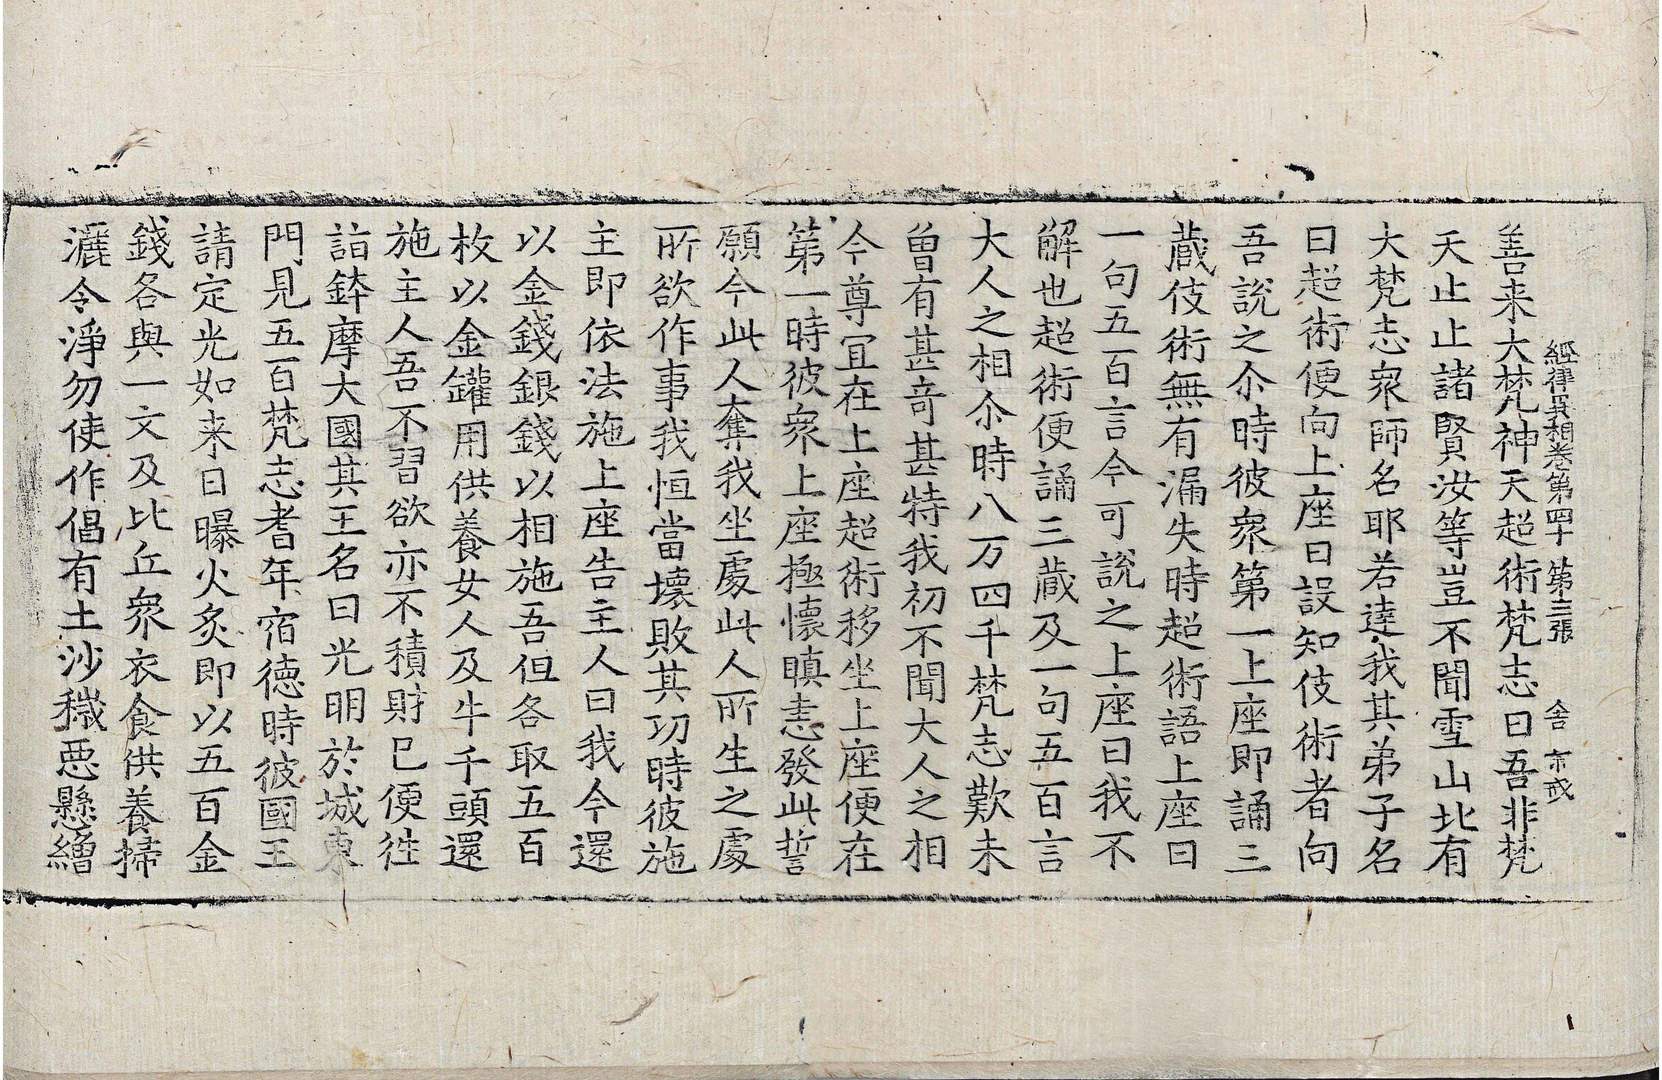 經律異相卷第四十 第三張 舍 亦戒
善来大梵神天超術梵志曰吾非梵
天止止諸賢汝等豈不聞雪山北有
大梵志衆師名耶若達我其弟子名
曰超術便向上座曰設知伎術者向
吾說之尒時彼衆第一上座即誦三
藏伎術無有漏失時超術語上座曰
一句五百言今可說之上座曰我不
解也超術便誦三藏及一句五百言
大人之相尒時八万四千梵志歎未
曾有甚奇甚特我初不聞大人之相
今尊宜在上座超術移坐上座便在
第一時彼衆上座極懷瞋恚發此誓
願今此人奪我坐處此人所生之處
所欲作事我恒當壞敗其功時彼施
主即依法施上座告主人曰我今還
以金錢銀錢以相施吾但各取五百
枚以金罐用供養女人及牛千頭還
施主人吾不習欲亦不積財已便往
詣鉢摩大國其王名曰光明於城東
門見五百梵志耆年宿德時彼國王
請定光如来日曝火炙即以五百金
錢各與一文及比丘衆衣食供養掃
灑令淨勿使作倡有土沙穢惡懸繒